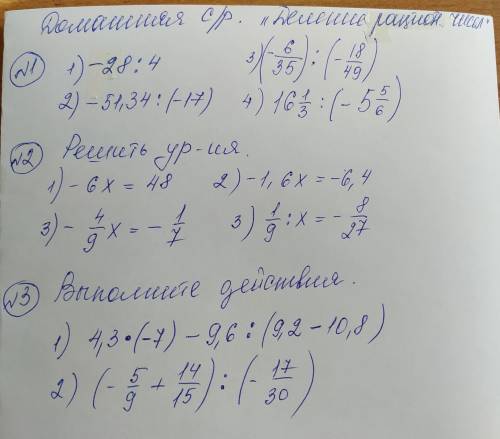 Домашняя с/р. "Деление рацион. чисел.
№1 1) -28 : 4 3) (-6/35) : (-18/49)
2) -51,34 : (-17) 4) 16 1/3 : (-5 5/6)
№2 Решить ур-ия.
1) -6x = 48 2) -1,6x = -6,4
3) -4/9 x = -1/7 3) 1/9 : x = -8/27
№3 Выполните действия.
1) 4,3 • (-7) - 9,6 : (9,2 - 10,8)
2) (-5/9 + 14/15) : (-17/30)